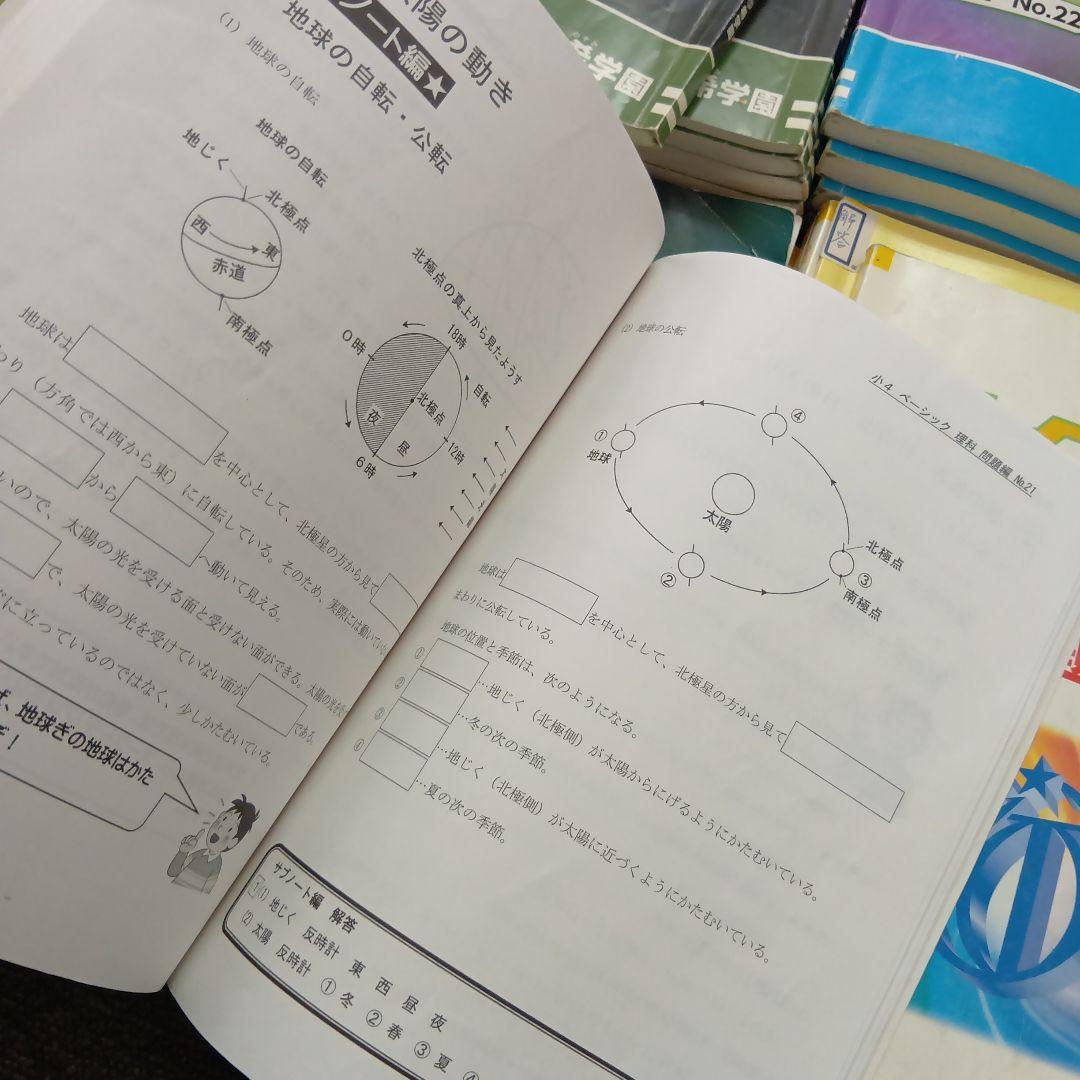 陽の動き
ノート編★
地球の自転・公転
(1) 地球の自転
地球の自転
地じく
北極点
西
東
赤道
南極点
北極点の真上から見たようす
0時
18時
自転
北極点
夜
昼
12時
6時
地球は
を中心として、北極星の方から見て
わり（方角では西から東）に自転している。そのため、実際には動いてい
から
へ動いて見える。
いので、太陽の光を受ける面と受けない面ができる。太陽の光を
で、太陽の光を受けていない面が
である。
に立っているのではなく、少しかたむいている。
、地球ぎの地球はかた
！
(2) 地球の公転
小4 ベーシック 理科 問題編 №21
①
地球
④
太陽
②
北極点
③
南極点
地球は
を中心として、北極星の方から見て
まわりに公転している。
地球の位置と季節は、次のようになる。
①
…地じく（北極側）が太陽からにげるようにかたむいている。
②
…冬の次の季節。
③
…地じく（北極側）が太陽に近づくようにかたむいている。
④
…夏の次の季節。
サブノート編 解答
1 (1) 地じく 反時計 東 西 昼 夜
(2) 太陽 反時計 ① 冬 ② 春 ③ 夏 ④
学園
学園
No.22
解答